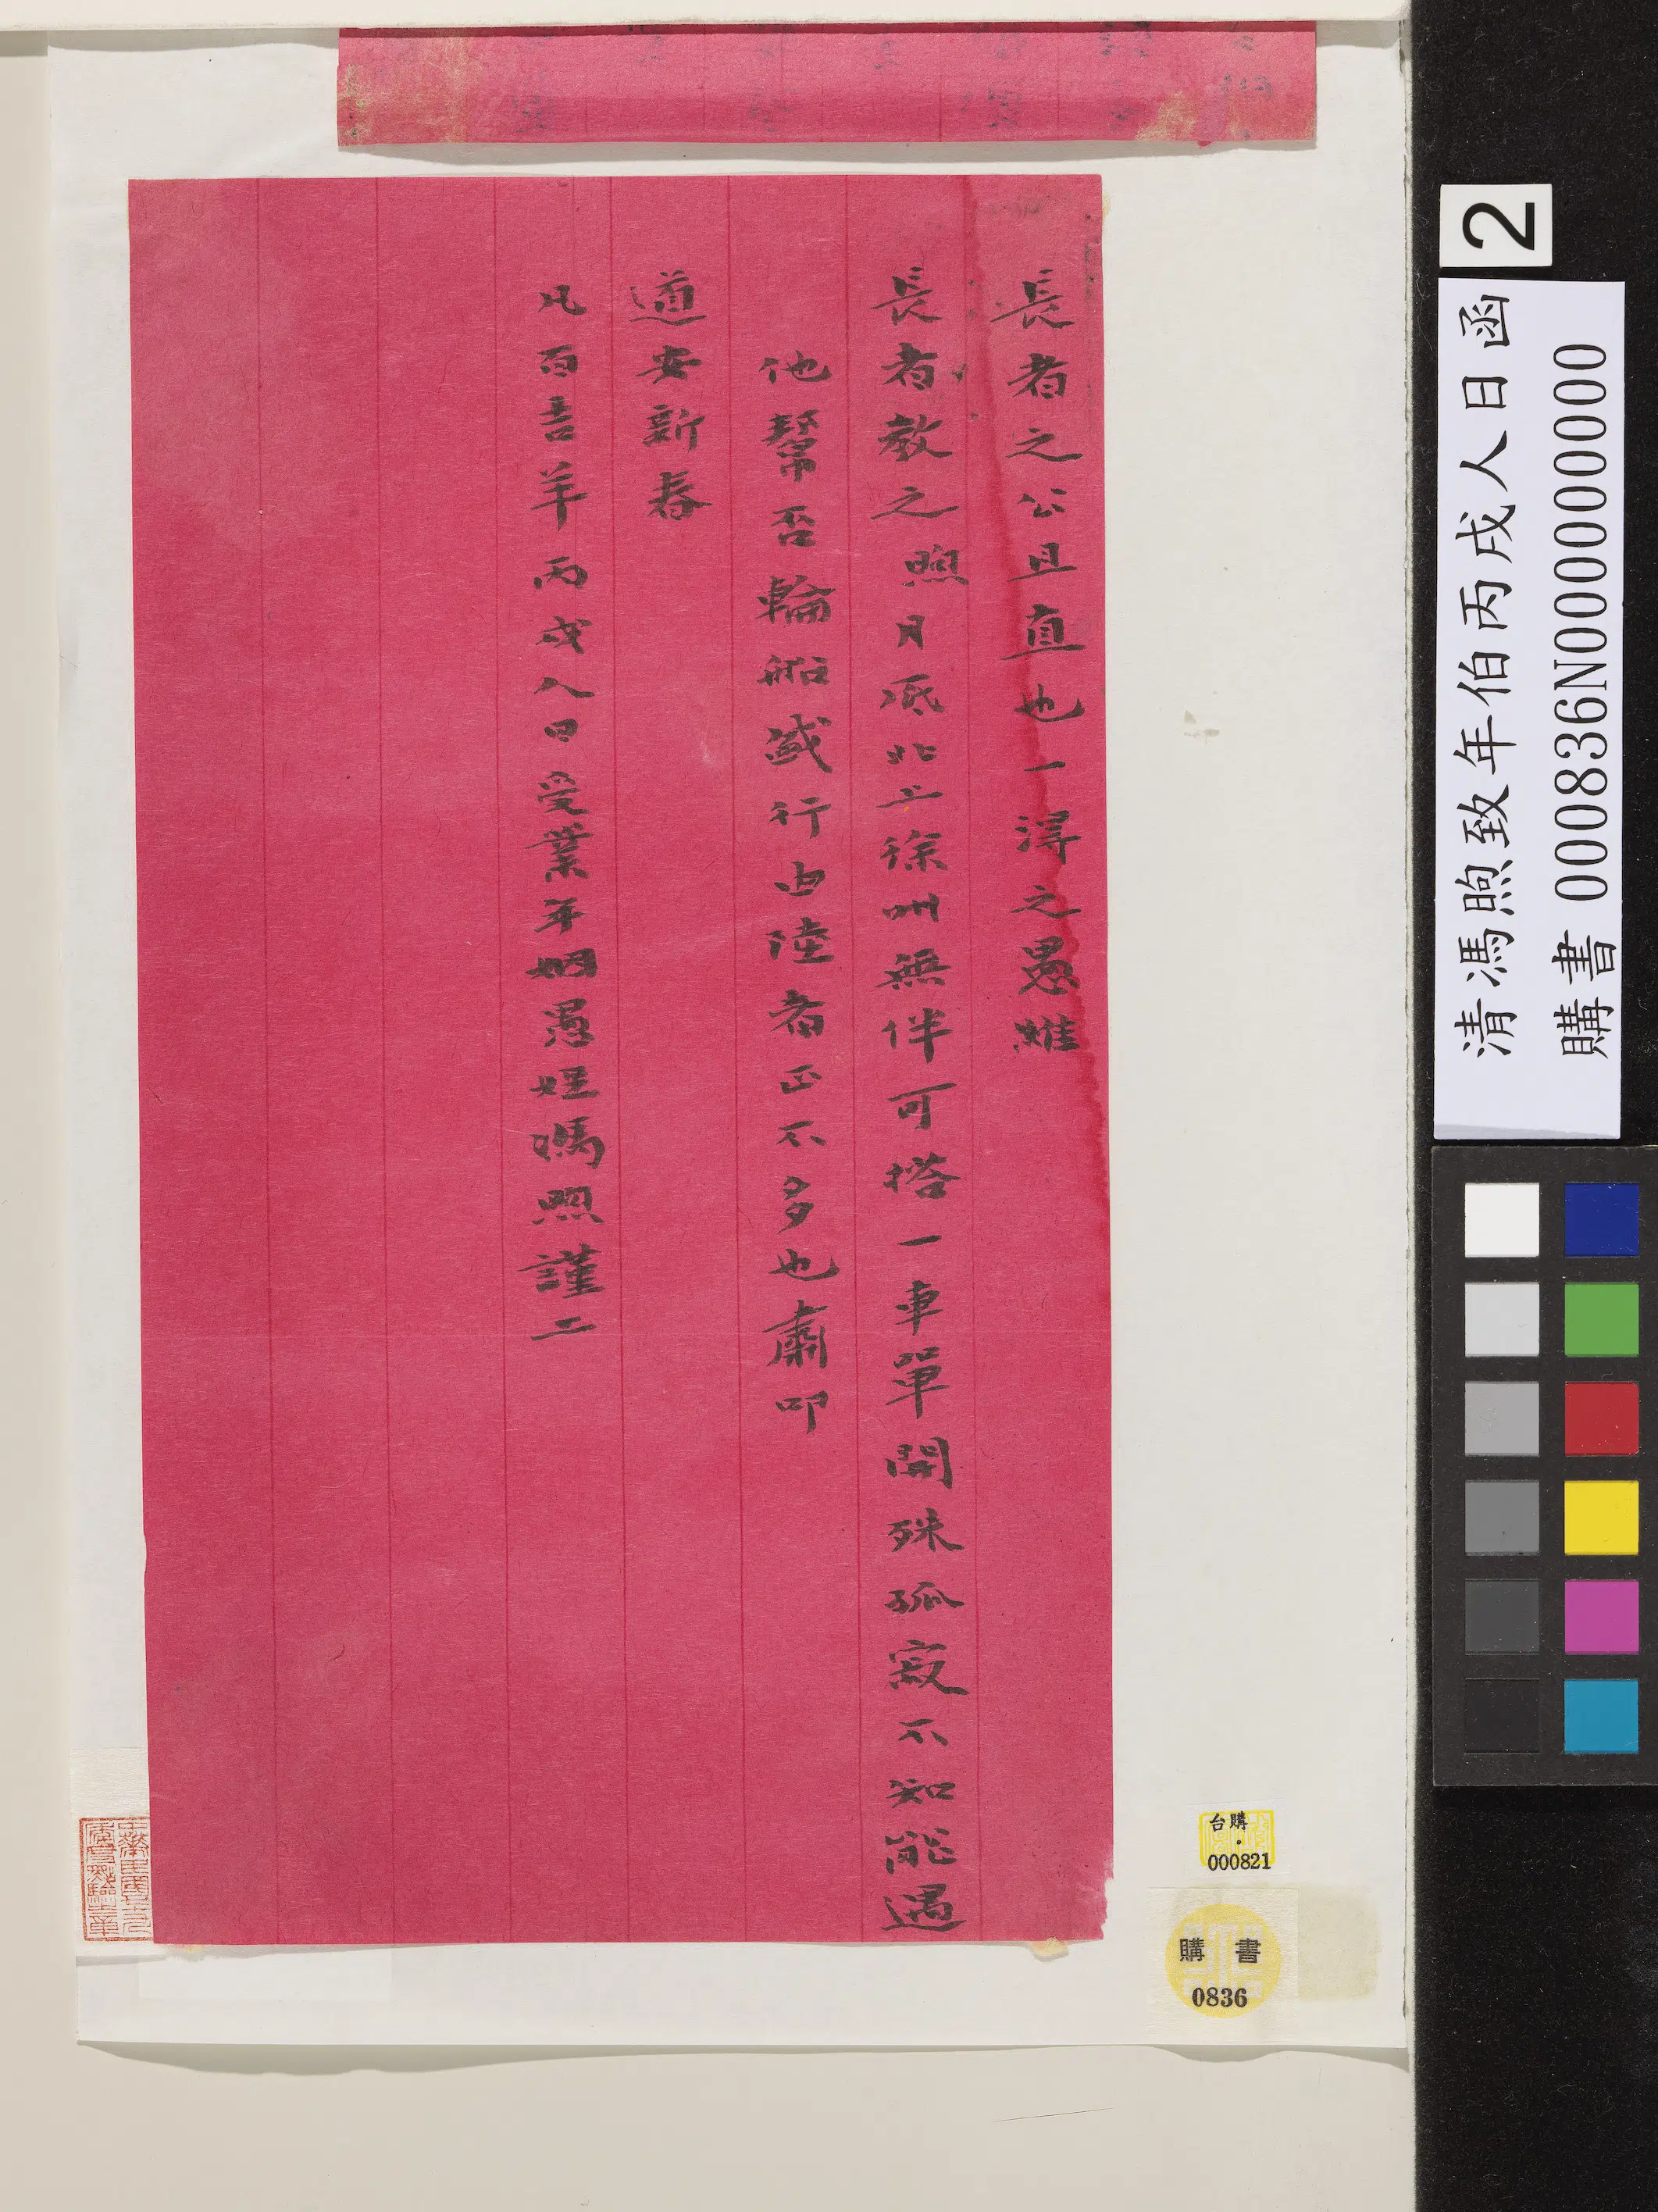 長者之公且直也一得之愚維
長者教之煦月底北上徐州無伴可搭一車單開殊孤寂不知能遇
他幫否輪船盛行由陸者正不多也肅叩
道安新春
凡百吉羊丙戌人日受業年姻愚姪馮煦謹上
2
清馮煦致年伯丙戌人日函
購書 000836N000000000
台購
000821
購書
0836